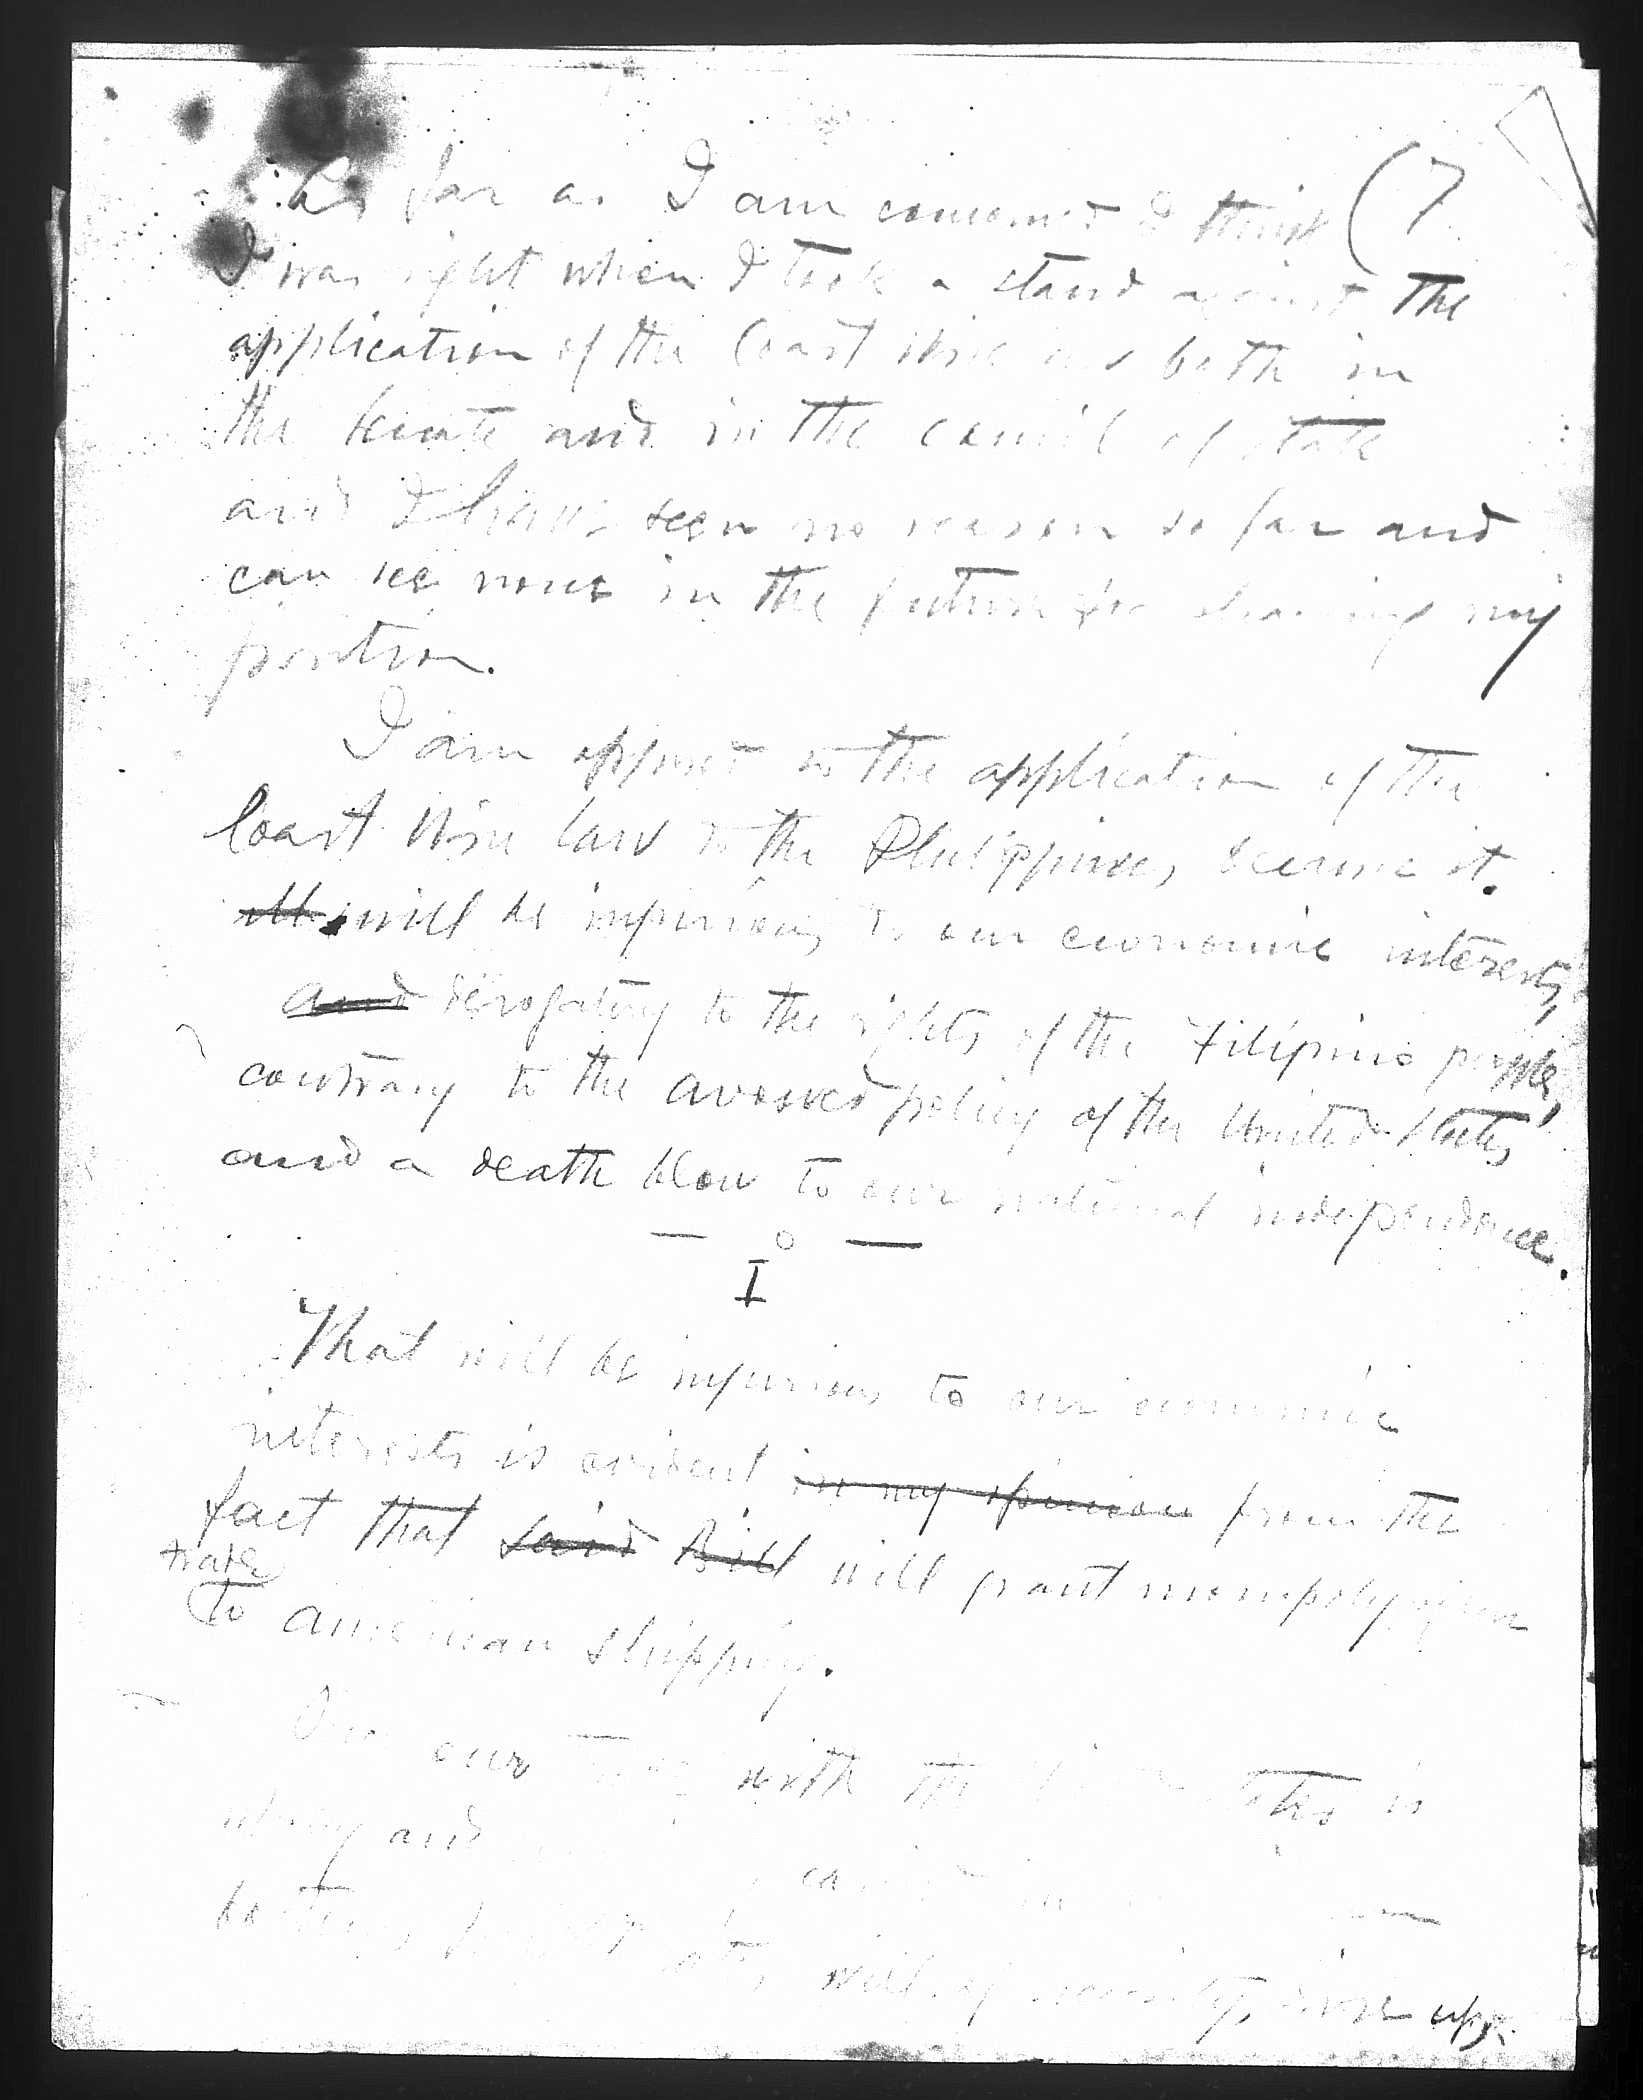 (7
As far as I am concerned I think
I was right when I took a stand against the
application of the Coast Wise law both in
the Senate and in the council of state
and I have seen no reason so far and
can see none in the future for changing my
position.
I am opposed to the application of the
Coast Wise law to the Philippines, because it
will be injurious to our economic interests,
and derogatory to the rights of the Filipino people,
contrary to the avowed policy of the United States,
and a death blow to our national independence.
— o —
I
That will be injurious to our economic
interests is evident in my opinion from the
fact that said Bill will grant monopoly
trade
to American shipping.
our with the States is
and
will of necessity, rise up.